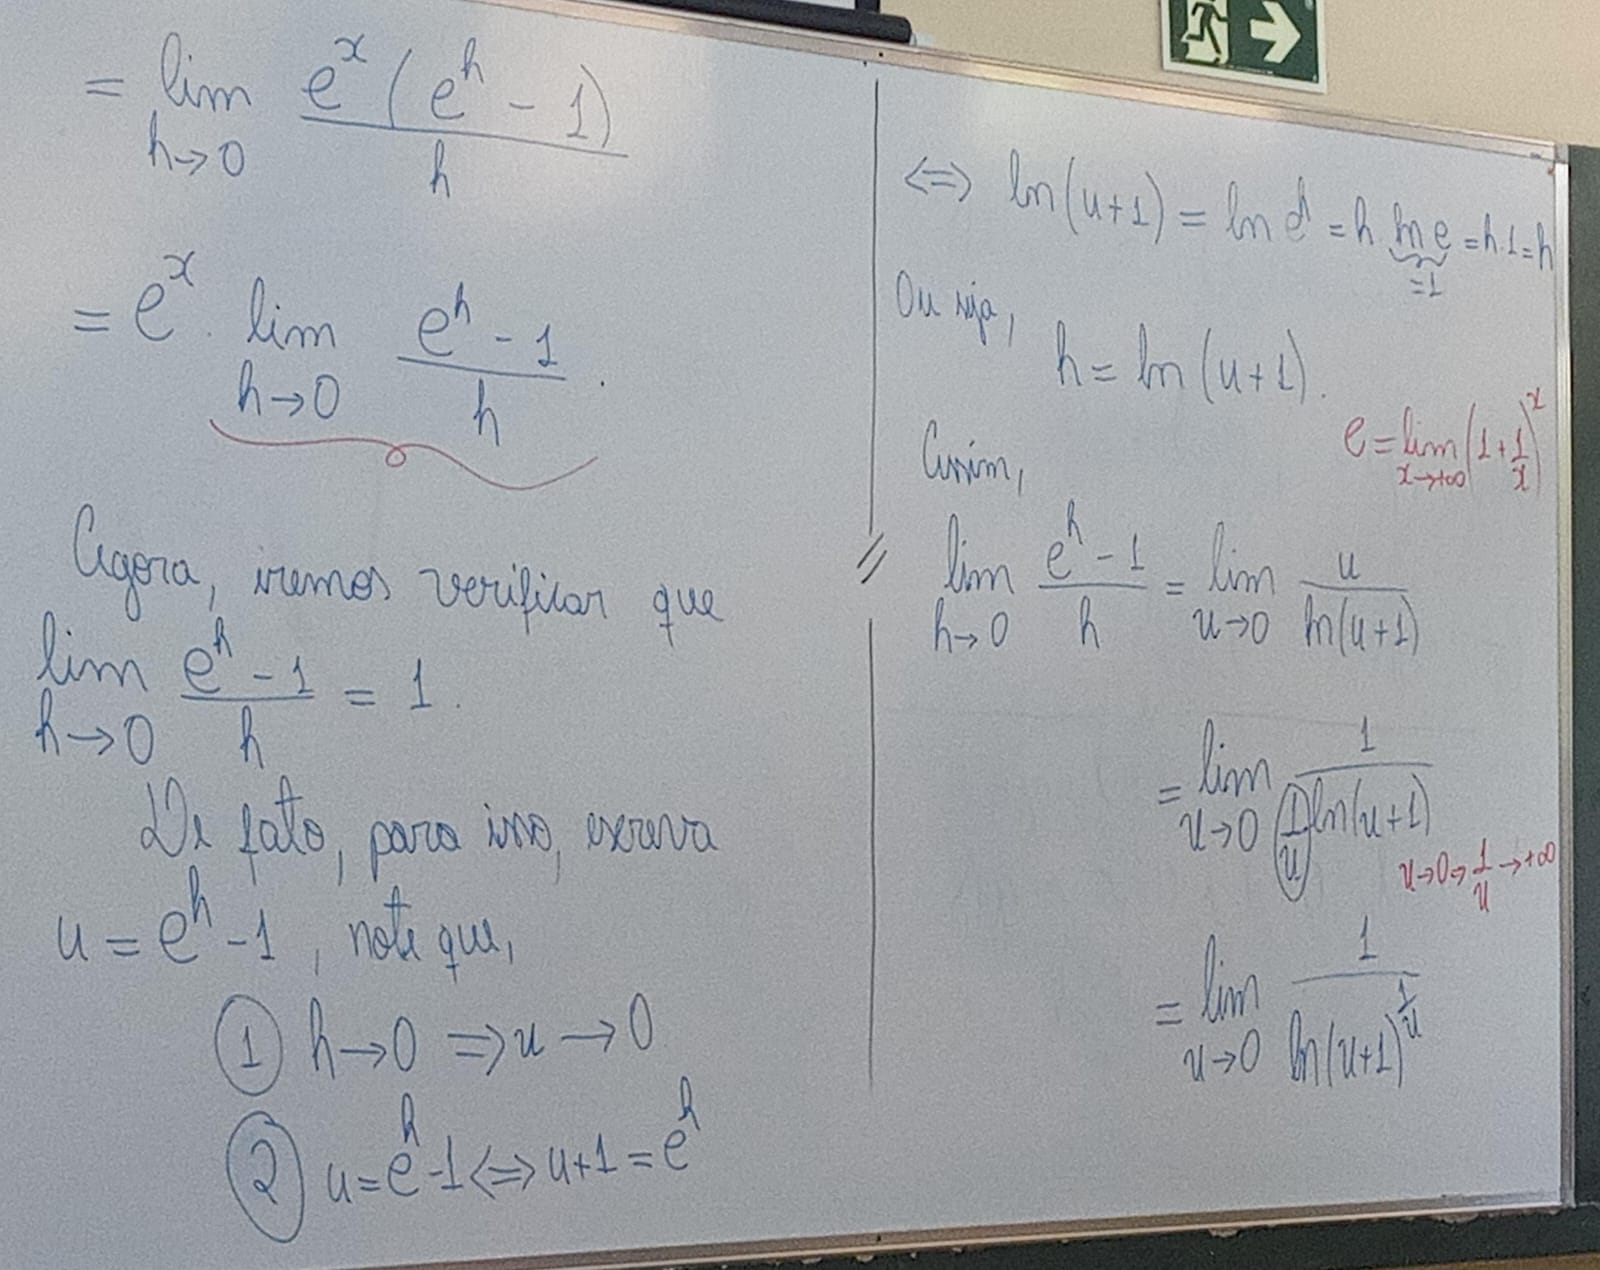 = lim e^x (e^h - 1)
h→0 h
= e^x . lim e^h - 1
h→0 h .
Agora, iremos verificar que
lim e^h - 1 = 1.
h→0 h
De fato, para isso, escreva
u = e^h - 1, note que,
① h→0 ⇒ u → 0
② u = e^h - 1 ⇔ u + 1 = e^h
⇔ ln(u+1) = ln e^h = h ln e = h.1 = h
=1
Ou seja,
h = ln(u+1).
e = lim (1 + 1/x)^x
x→+∞
Assim,
lim e^h - 1 = lim u
h→0 h u→0 ln(u+1)
= lim 1
u→0 1/u ln(u+1)
u→0 ⇒ 1/u → +∞
= lim 1
u→0 ln(u+1)^1/u